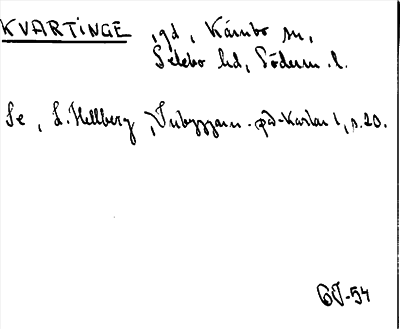 KVARTINGE , gd, Kärnbo sn,
Selebo hd, Söderm. l.
Se, L. Hellberg, Inbyggarn. på -karlar 1, s. 20.
GT-54